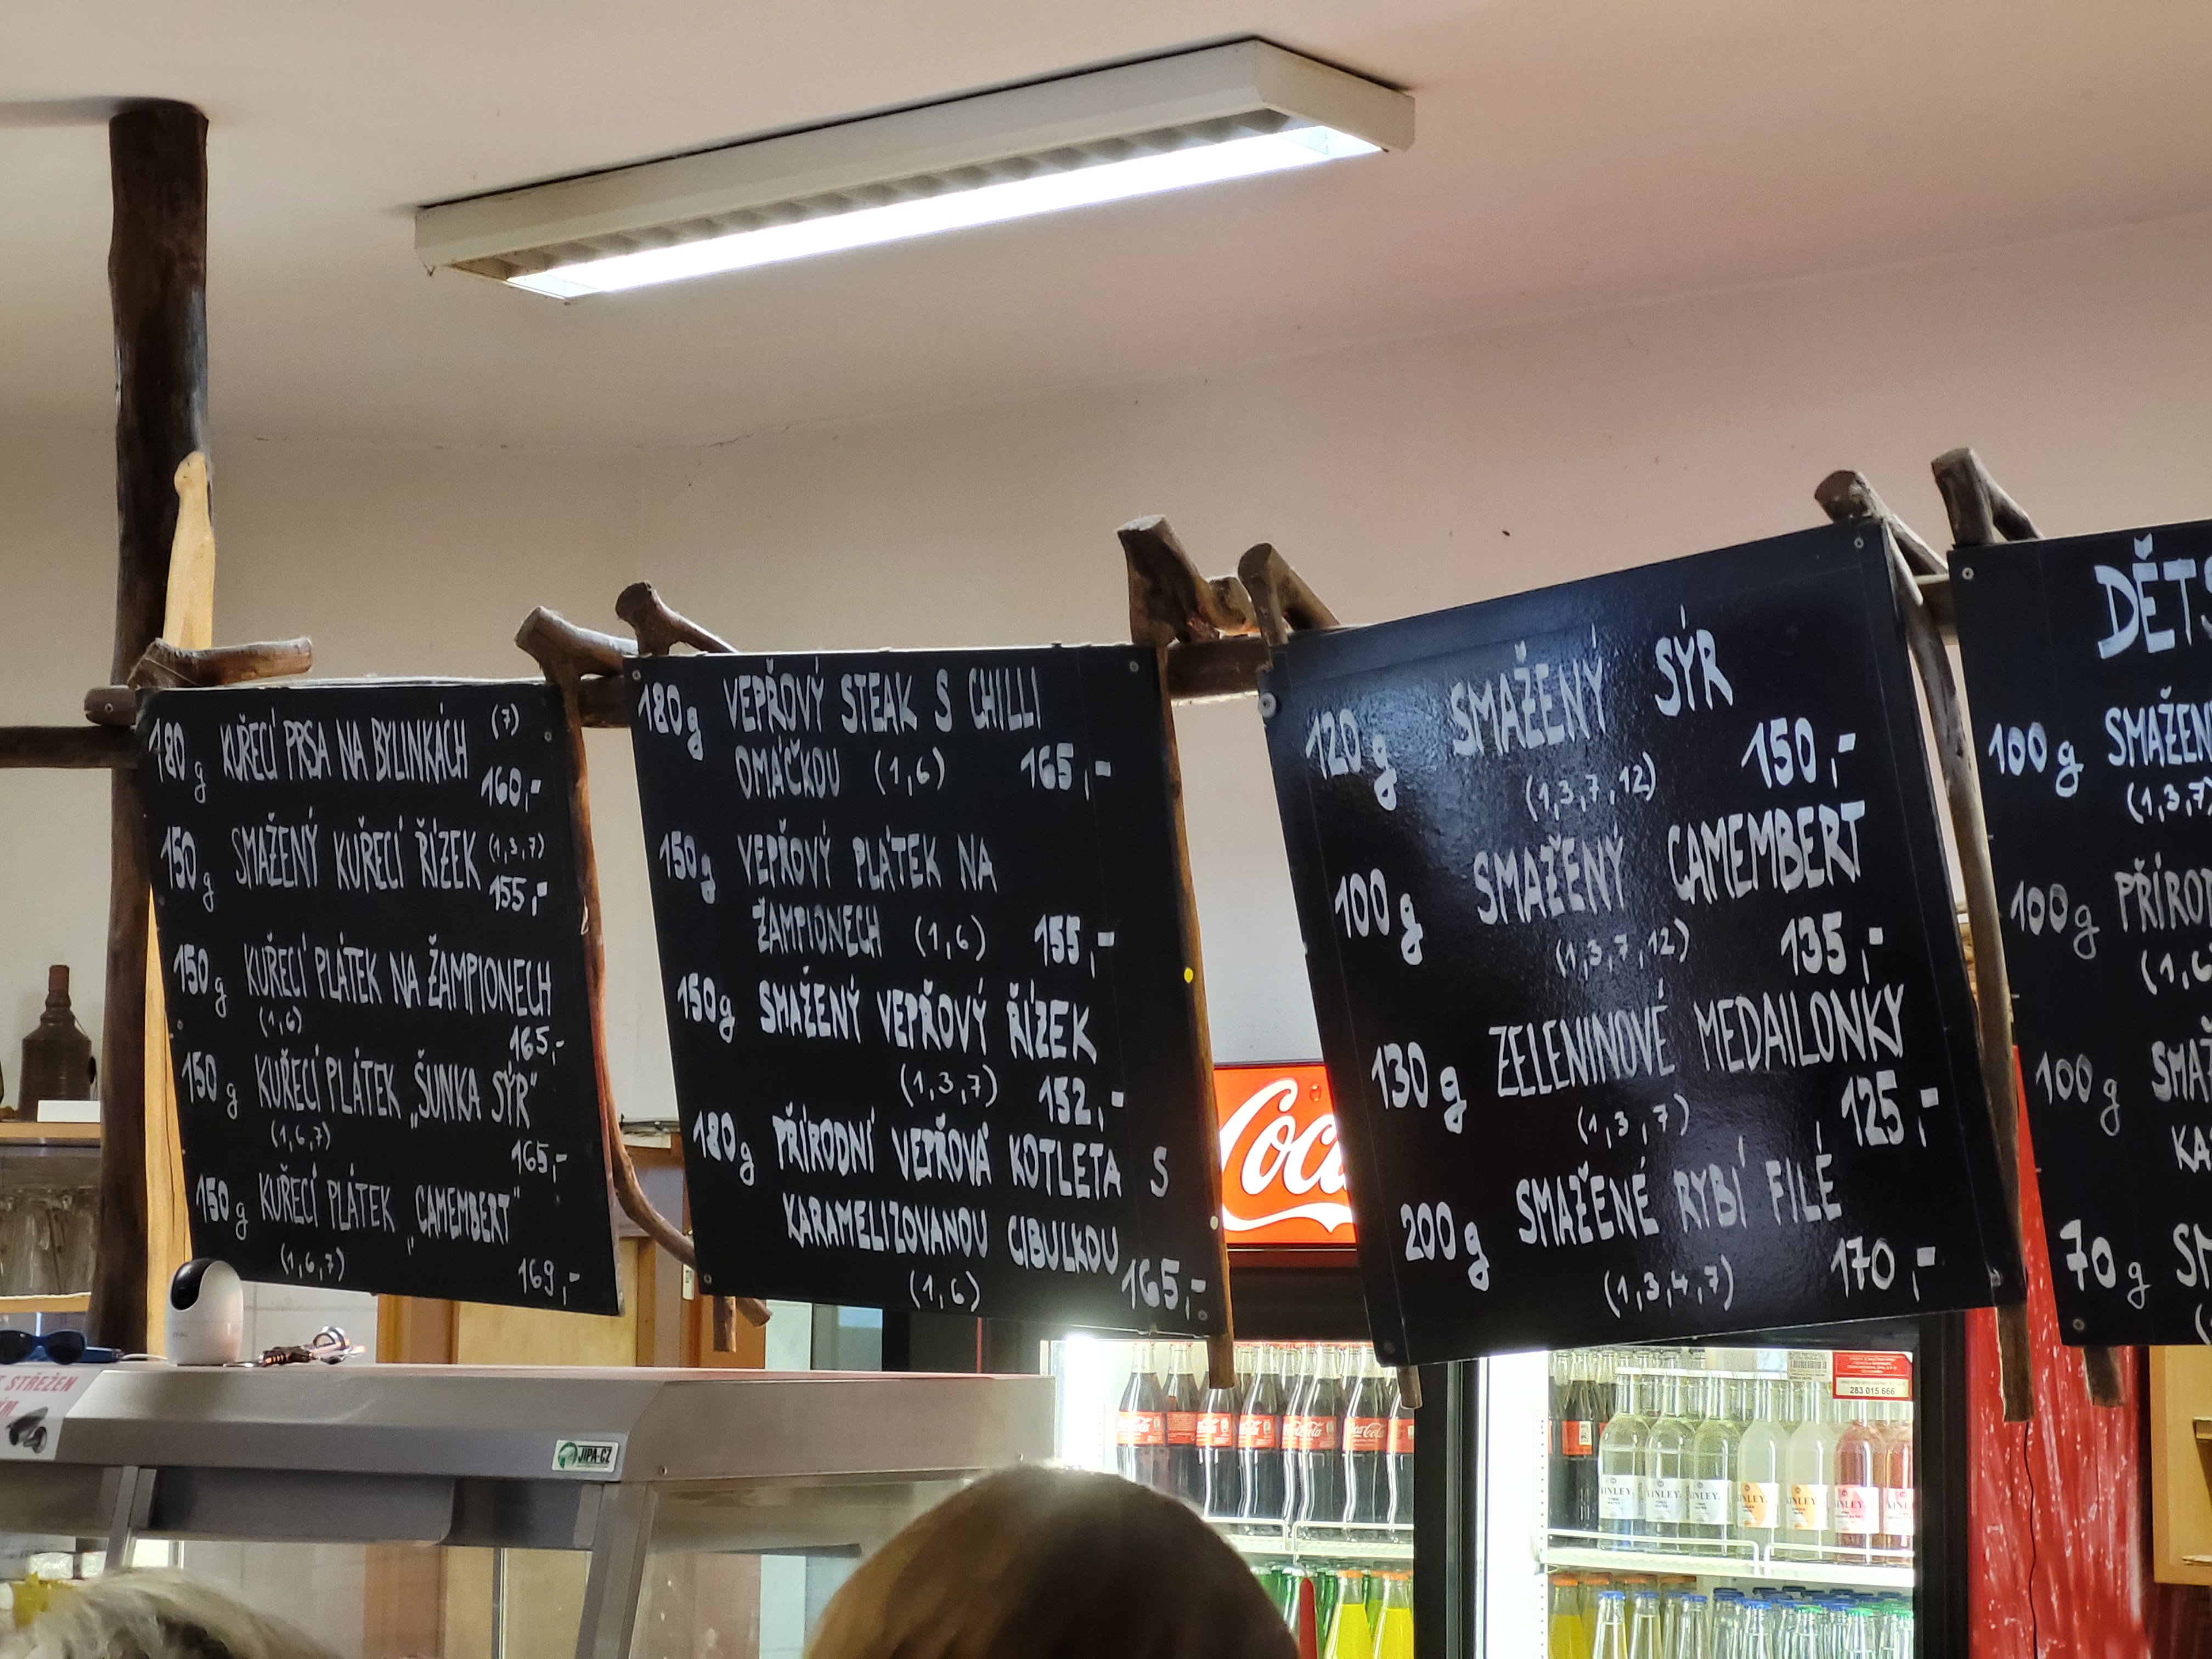 180 g KUŘECÍ PRSA NA BYLINKÁCH (7)
160,-
150 g SMAŽENÝ KUŘECÍ ŘÍZEK (1,3,7)
155,-
150 g KUŘECÍ PLÁTEK NA ŽAMPIONECH
(1,6) 165,-
150 g KUŘECÍ PLÁTEK „ŠUNKA SÝR"
(1,6,7) 165,-
150 g KUŘECÍ PLÁTEK „CAMEMBERT"
(1,6,7) 169,-
180g VEPŘOVÝ STEAK S CHILLI
OMÁČKOU (1,6) 165,-
150g VEPŘOVÝ PLÁTEK NA
ŽAMPIONECH (1,6) 155,-
150g SMAŽENÝ VEPŘOVÝ ŘÍZEK
(1,3,7) 152,-
180g PŘÍRODNÍ VEPŘOVÁ KOTLETA S
KARAMELIZOVANOU CIBULKOU
(1,6) 165,-
120 g SMAŽENÝ SÝR
(1,3,7,12) 150,-
100 g SMAŽENÝ CAMEMBERT
(1,3,7,12) 135,-
130 g ZELENINOVÉ MEDAILONKY
(1,3,7) 125,-
200 g SMAŽENÉ RYBÍ FILÉ
(1,3,4,7) 170,-
DĚTS
100 g SMAŽEN
(1,3,7)
100 g PŘÍROD
(1,6
100 g SMAŽ
KA
70 g SM
Coca
STŘEŽEN
JIPA-CZ
Coca-Cola
283 015 666
INLEY